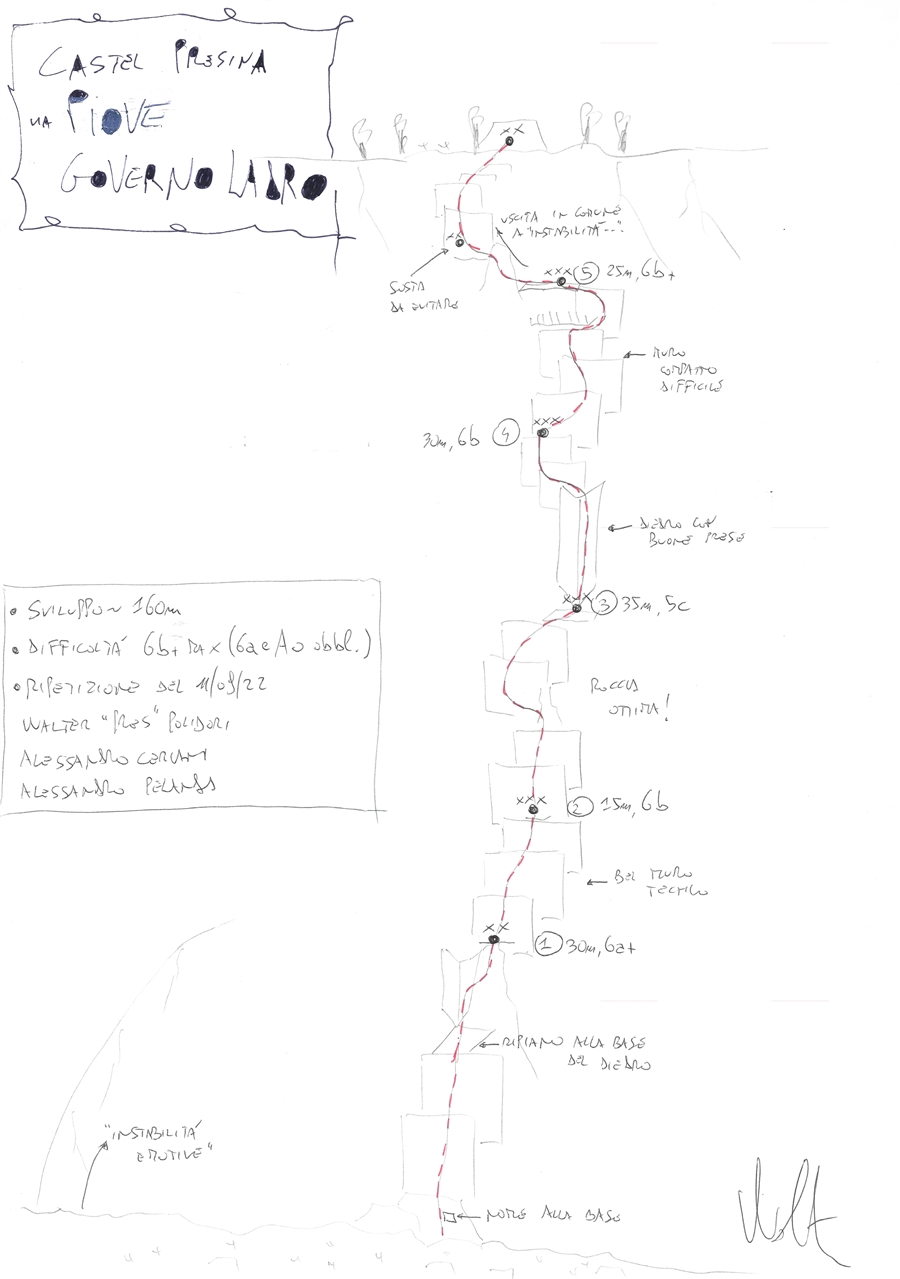 CASTEL PRESINA
VIA PIOVE
GOVERNO LADRO
XX
USCITA IN COMUNE
A "INSTABILITÀ..."
XX
SOSTA
DA EVITARE
XXX
5 25m, 6b+
MURO
COMPATTO
DIFFICILE
XXX
30m, 6b 4
DIEDRO CON
BUONE PRESE
XXX
3 35m, 5c
• SVILUPPO ~ 160m
• DIFFICOLTÀ 6b+ MAX (6a e A0 obbl.)
• RIPETIZIONE DEL 11/09/22
WALTER "PRES" POLIDORI
ALESSANDRO CERIANI
ALESSANDRO
ROCCIA
OTTIMA!
XXX
2 15m, 6b
BEL MURO
TECNICO
XX
1 30m, 6a+
RIPIANO ALLA BASE
DEL DIEDRO
"INSTABILITÀ
EMOTIVE"
NOME ALLA BASE